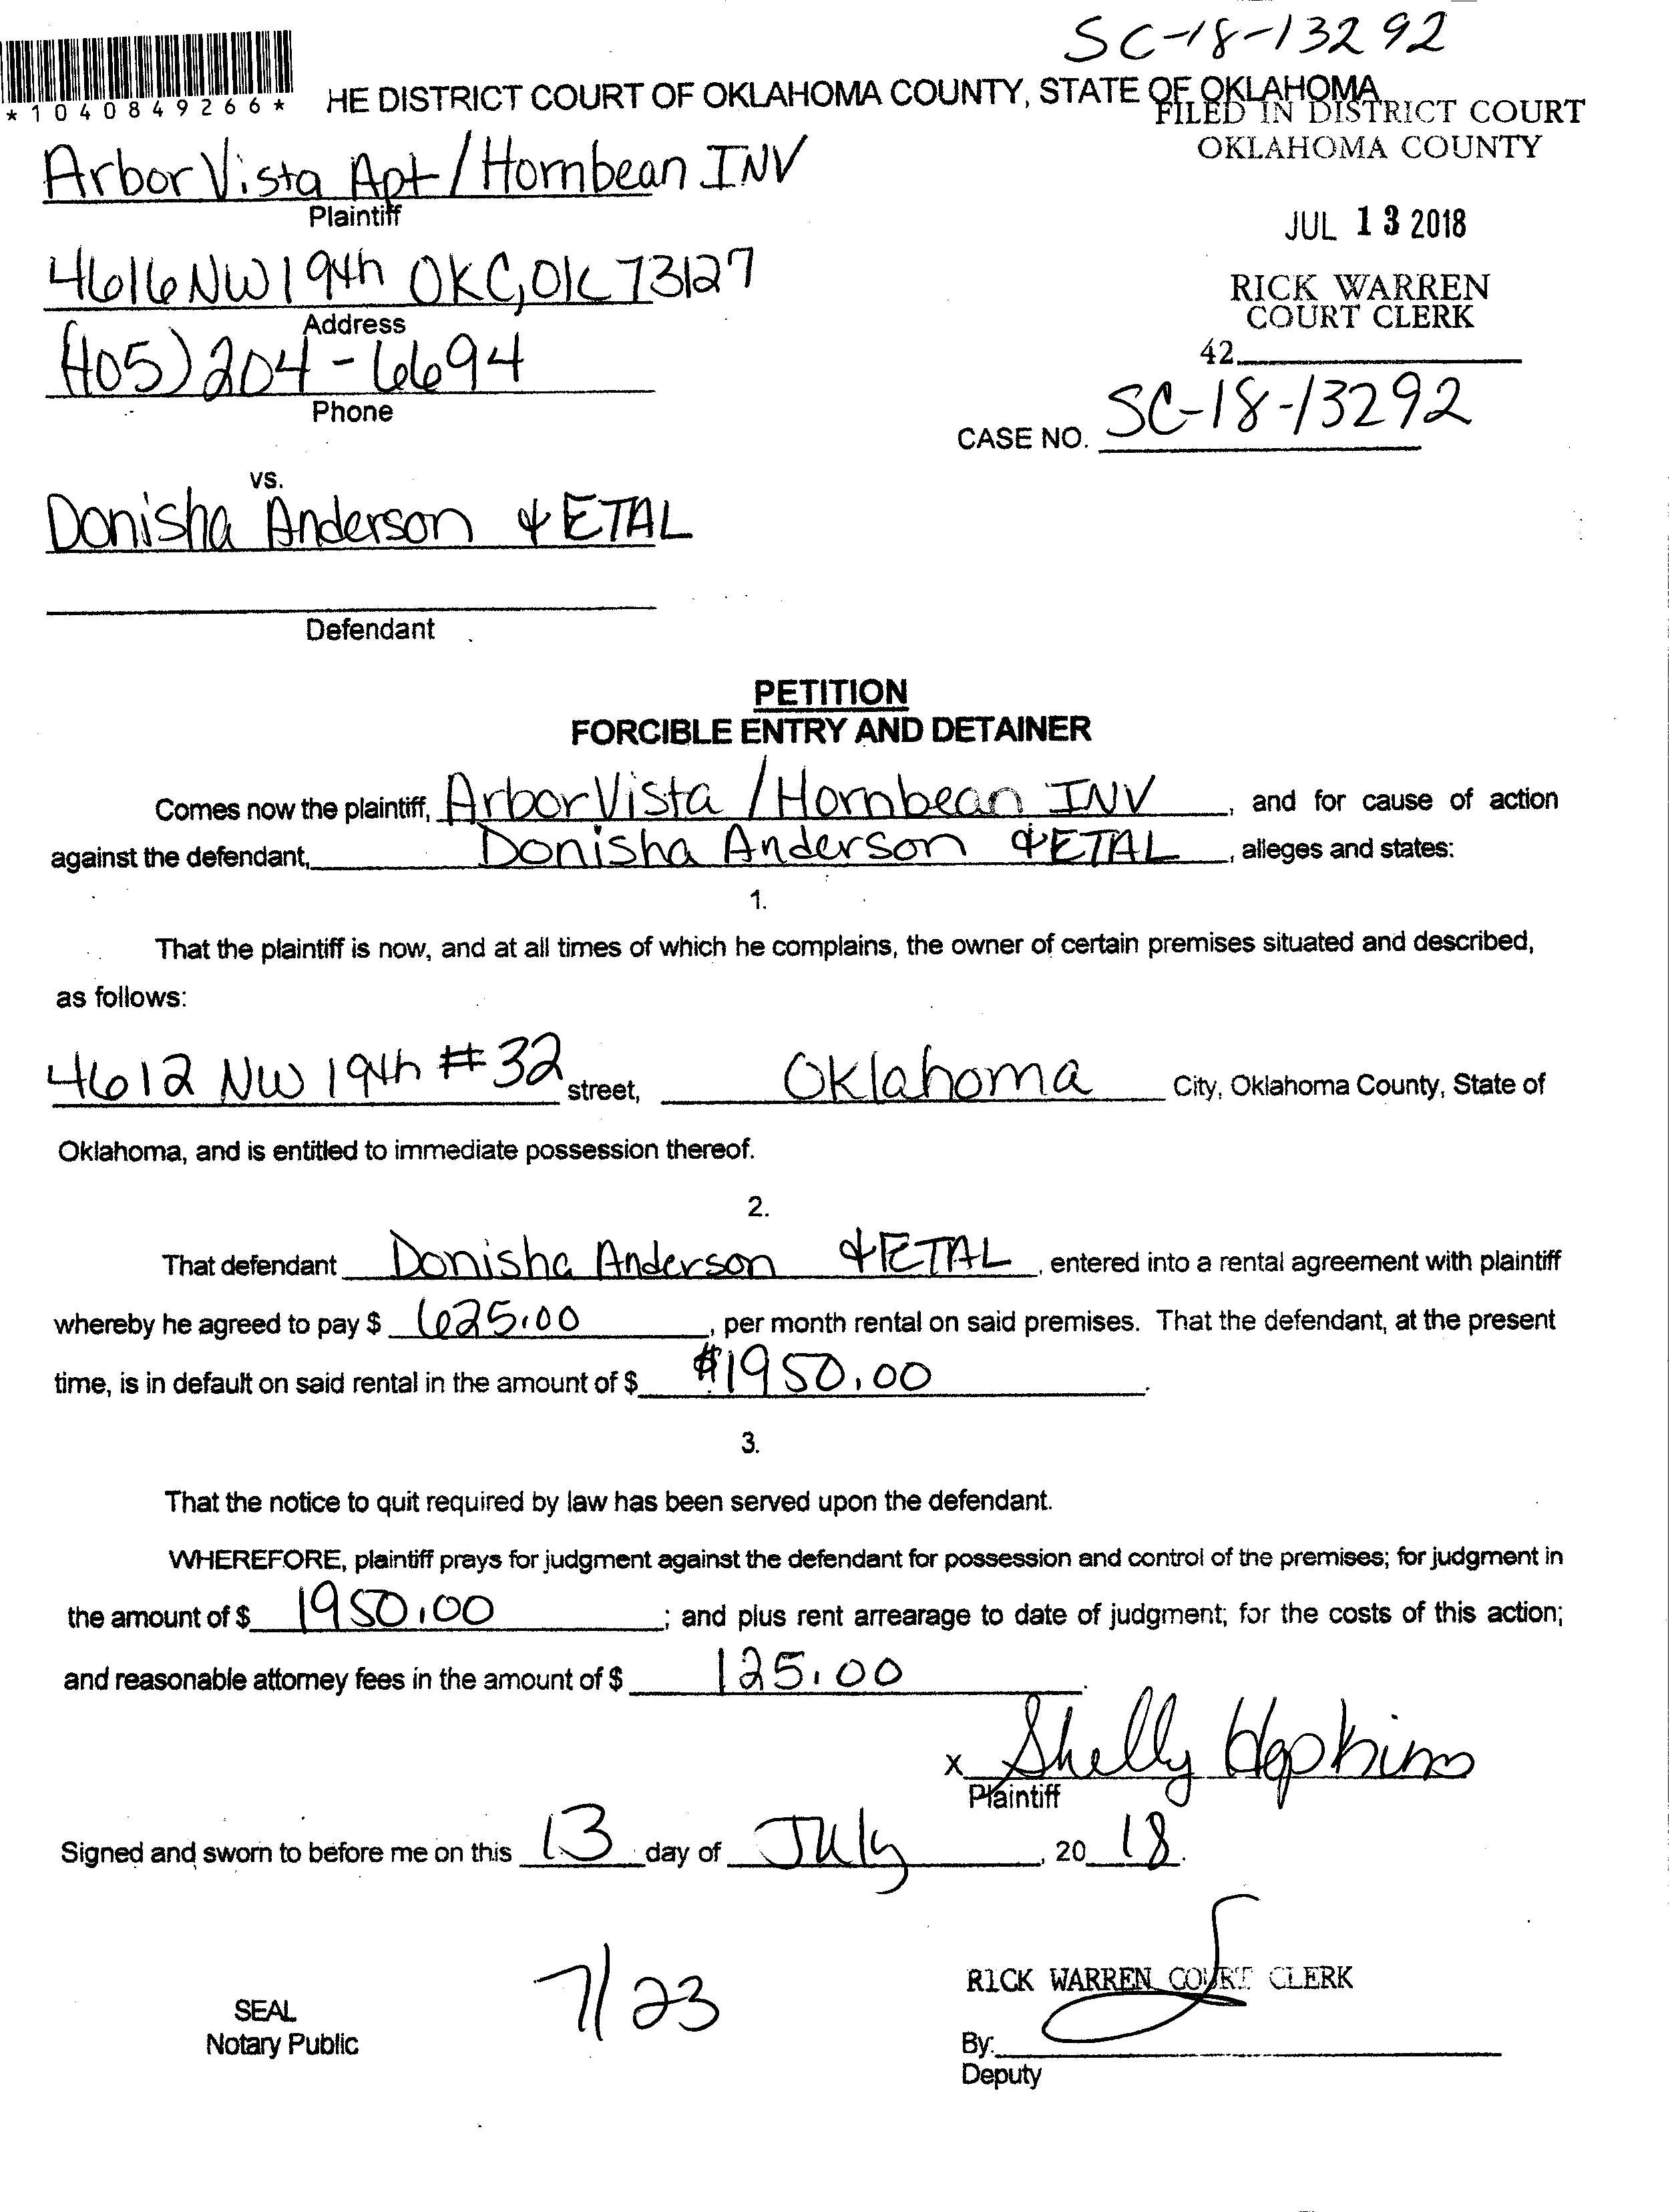 SC-18-13292
*1040849266*
HE DISTRICT COURT OF OKLAHOMA COUNTY, STATE OF OKLAHOMA
FILED IN DISTRICT COURT
OKLAHOMA COUNTY
Arbor Vista Apt/Hornbean INV
Plaintiff
JUL 13 2018
4616 NW 19th OKC, OK 73127
Address
RICK WARREN
COURT CLERK
42
(405) 204-6694
Phone
CASE NO. SC-18-13292
vs.
Donisha Anderson & ETAL
Defendant
PETITION
FORCIBLE ENTRY AND DETAINER
Comes now the plaintiff, Arbor Vista / Hornbean INV, and for cause of action
against the defendant, Donisha Anderson & ETAL, alleges and states:
1.
That the plaintiff is now, and at all times of which he complains, the owner of certain premises situated and described,
as follows:
4612 NW 19th #32 street, Oklahoma City, Oklahoma County, State of
Oklahoma, and is entitled to immediate possession thereof.
2.
That defendant Donisha Anderson & ETAL, entered into a rental agreement with plaintiff
whereby he agreed to pay $ 625.00, per month rental on said premises. That the defendant, at the present
time, is in default on said rental in the amount of $ $1950.00.
3.
That the notice to quit required by law has been served upon the defendant.
WHEREFORE, plaintiff prays for judgment against the defendant for possession and control of the premises; for judgment in
the amount of $ 1950.00; and plus rent arrearage to date of judgment; for the costs of this action;
and reasonable attorney fees in the amount of $ 125.00.
x Shelly Hopkins
Plaintiff
Signed and sworn to before me on this 13 day of July, 20 18.
RICK WARREN COURT CLERK
SEAL
Notary Public
7/23
By:
Deputy